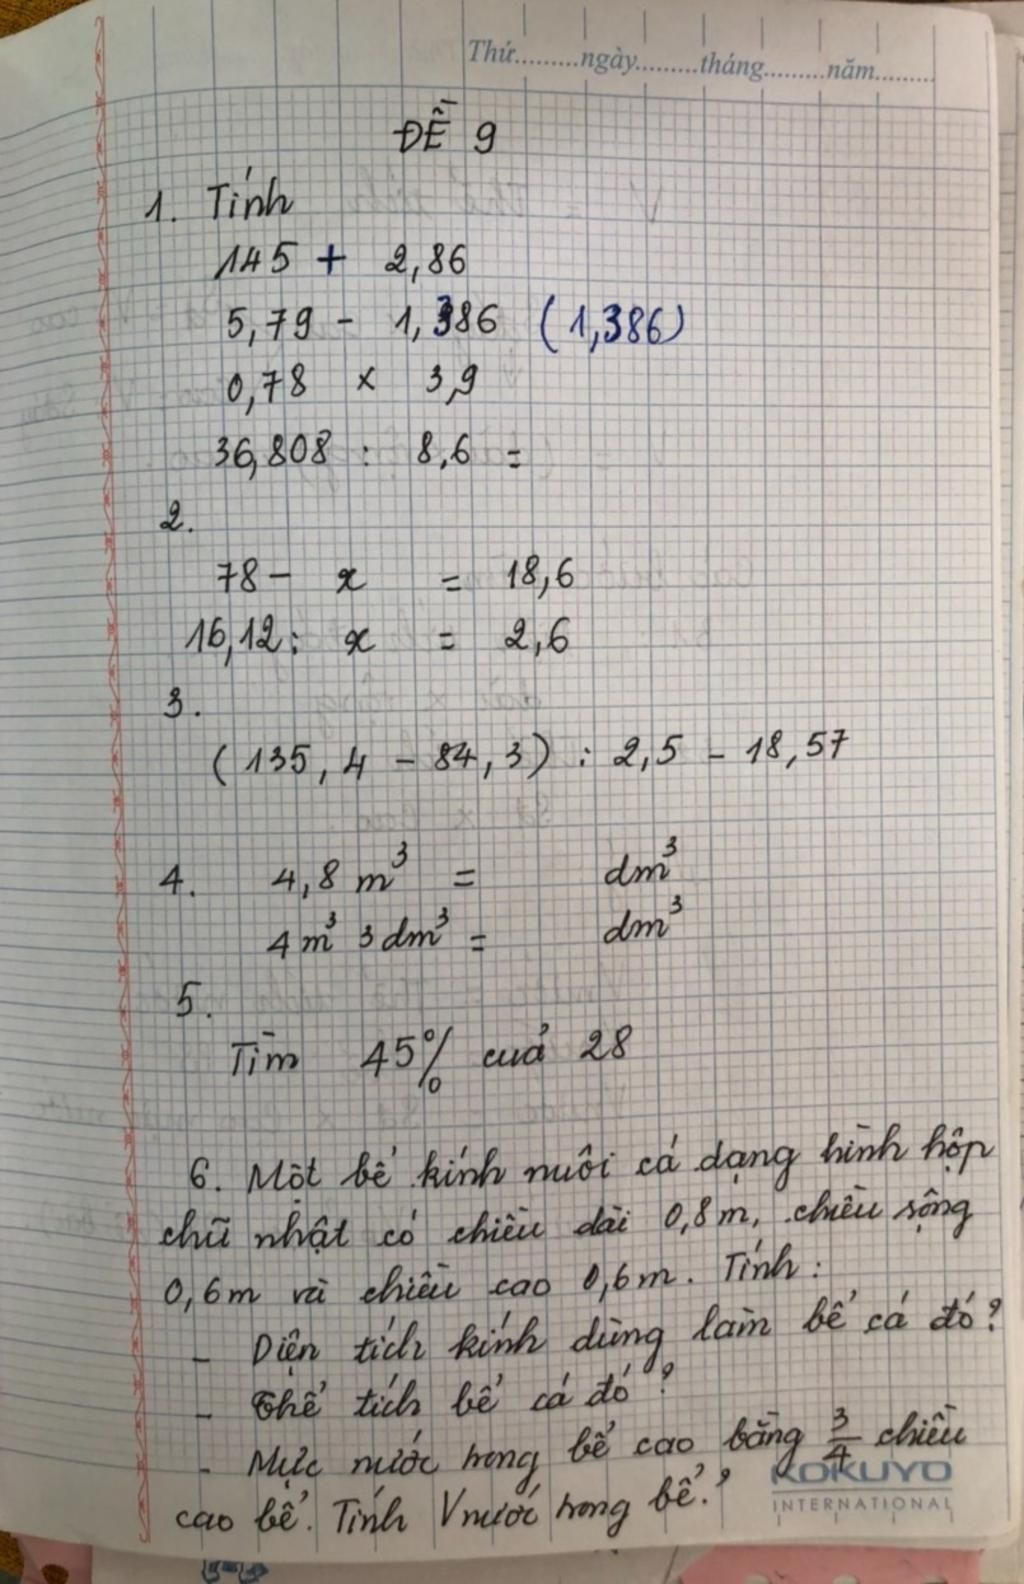 Thứ.........ngày.........tháng.........năm.........
ĐỀ 9
1. Tính
145 + 2,86
5,79 - 1,386 (1,386)
0,78 x 3,9
36,808 : 8,6 =
2.
78 - x = 18,6
16,12 : x = 2,6
3.
(135,4 - 84,3) : 2,5 - 18,57
4. 4,8 m³ = dm³
4m³ 3dm³ = dm³
5.
Tìm 45% cuả 28
6. Một bể kính nuôi cá dạng hình hộp
chữ nhật có chiều dài 0,8m, chiều rộng
0,6m và chiều cao 0,6m. Tính:
- Diện tích kính dùng làm bể cá đó?
- Thể tích bể cá đó?
- Mực nước trong bể cao bằng 3/4 chiều
cao bể. Tính Vnước trong bể?
KOKUYO
INTERNATIONAL